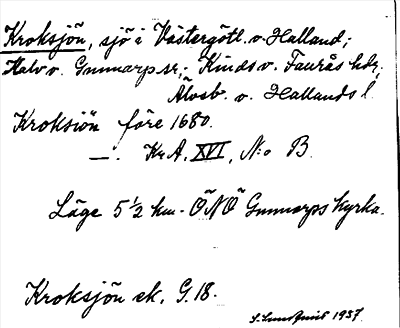 Kroksjön, sjö i Västergötl. o. Halland;
Kalv o. Gunnarp sr; Kinds o. Faurås hdr;
Älvsb. o. Hallands l.
Kroksiön före 1680.
—. Kr A. XVI, N:o B.
Läge 5 ½ km. ÖNÖ Gunnarps kyrka.
Kroksjön ek. G.18.
S. Lundquist 1937.